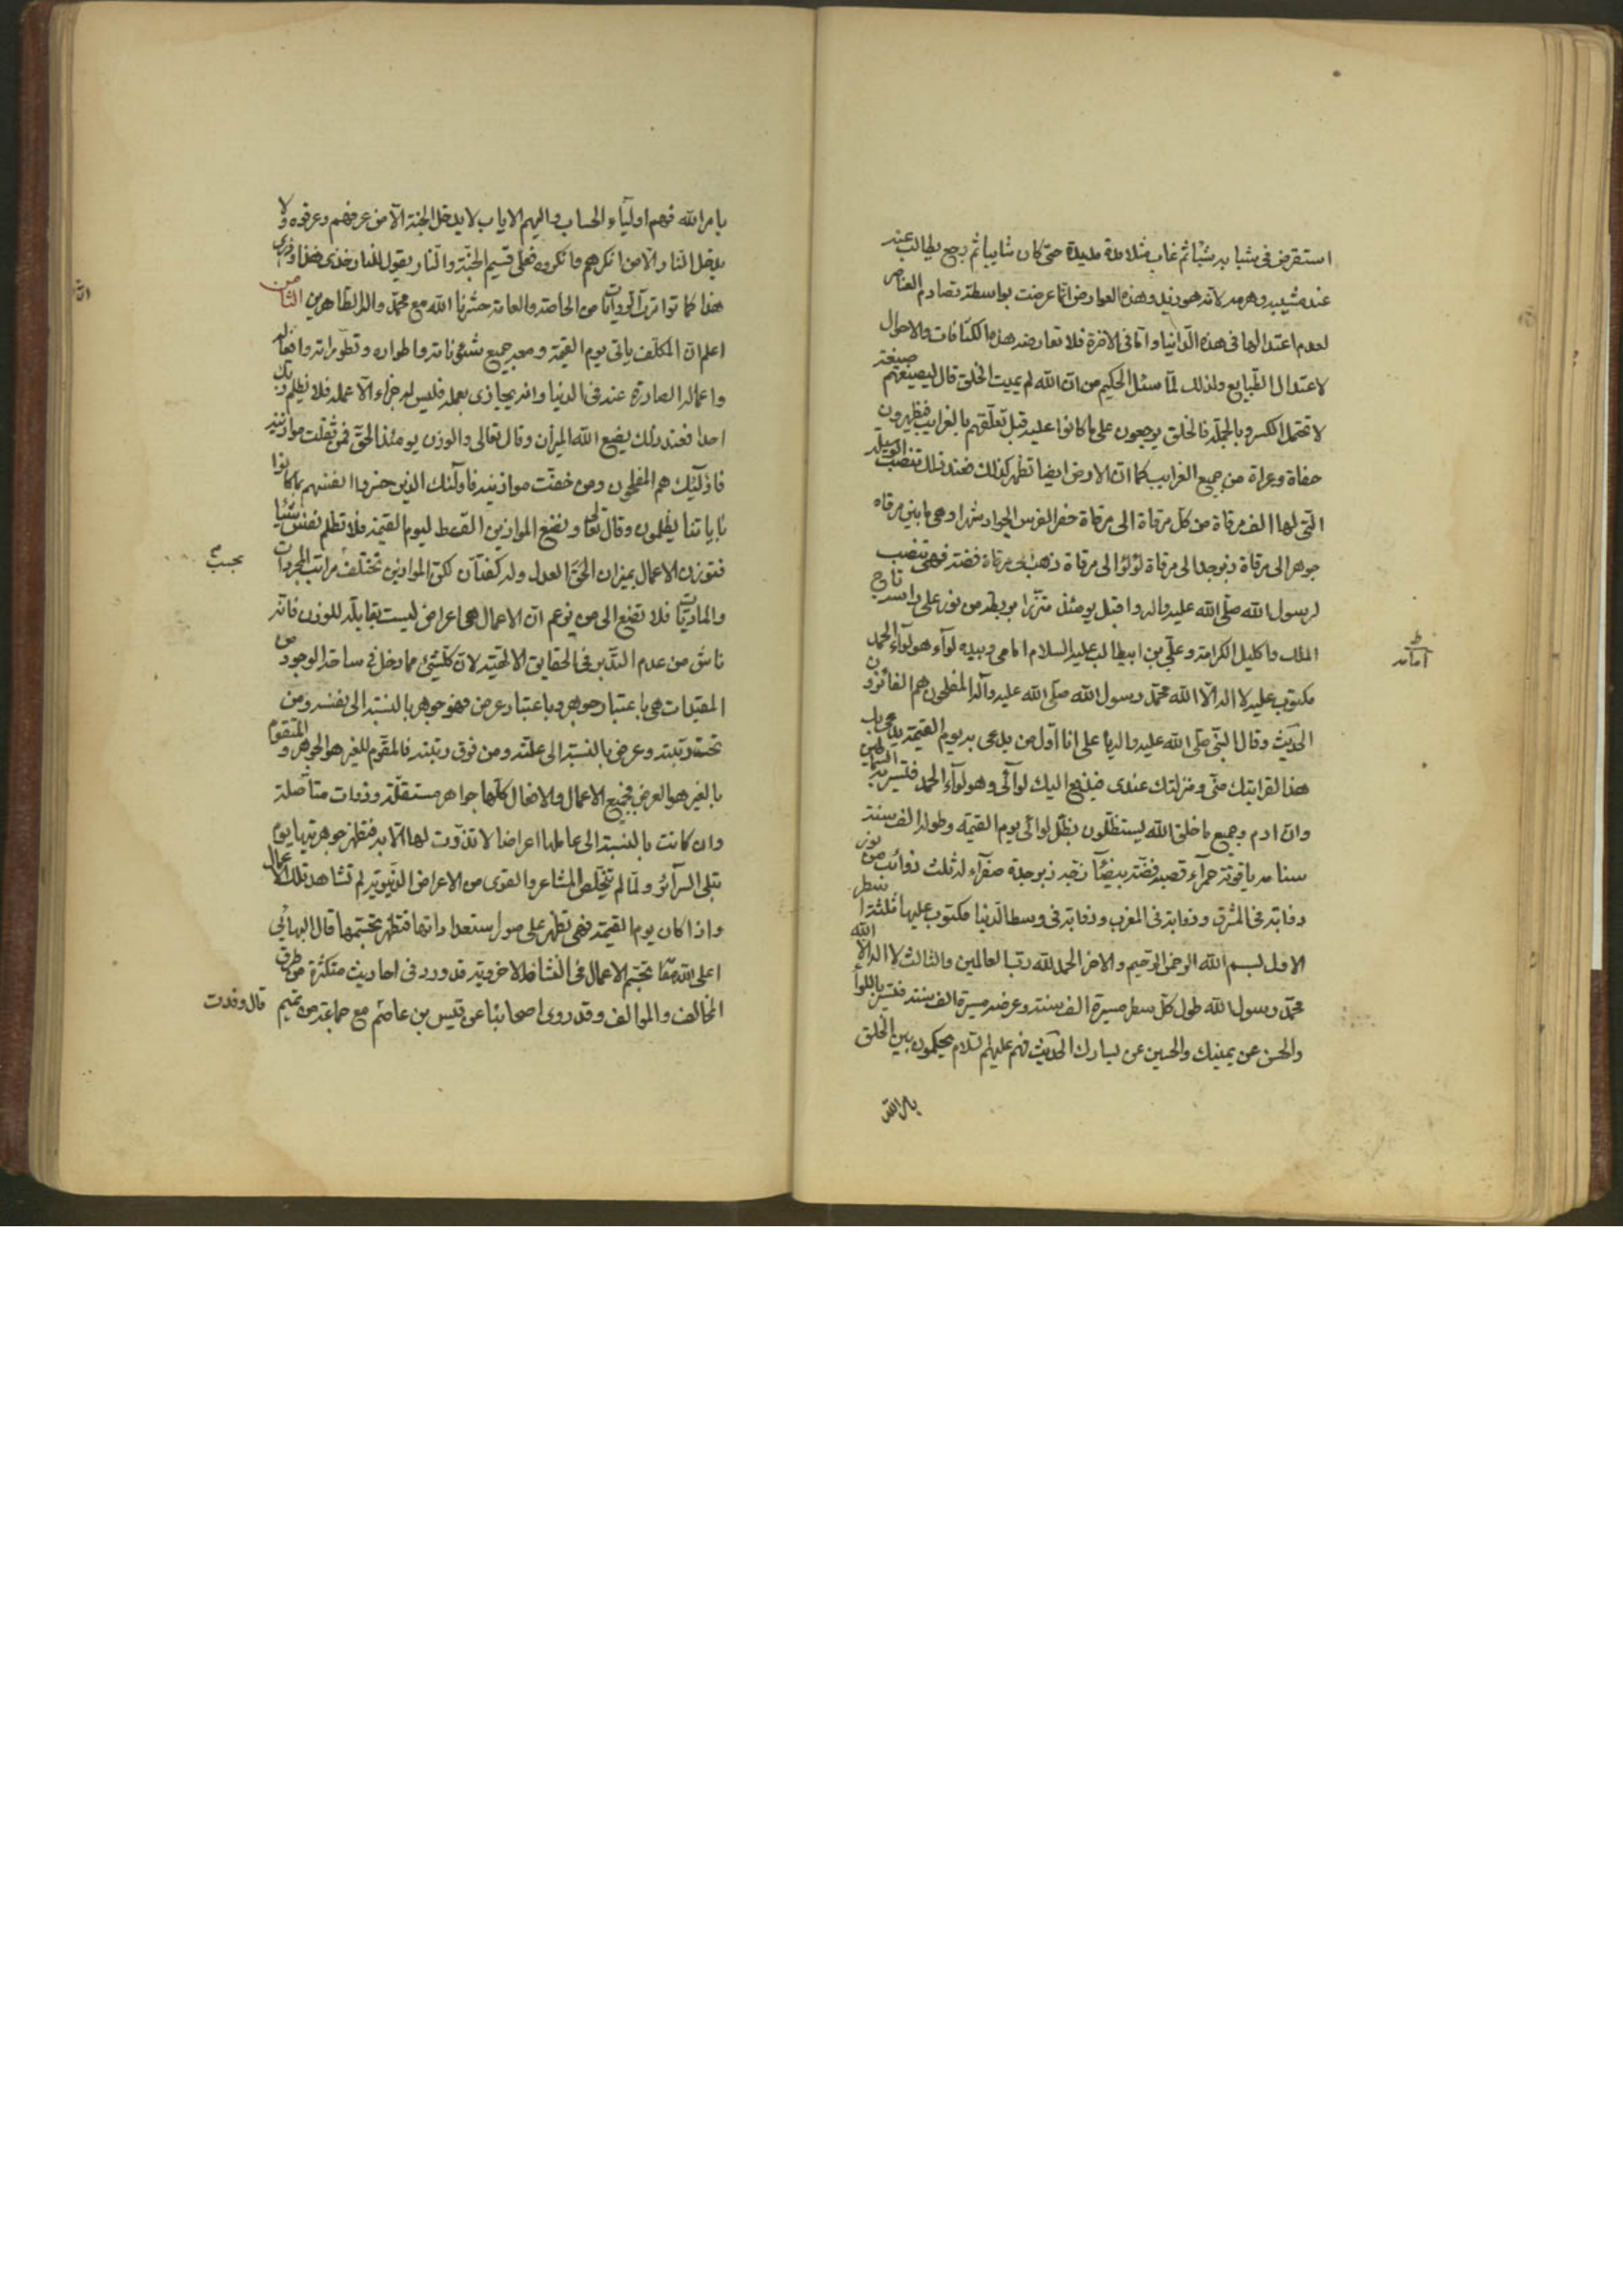 استقرض فى شبابه شيئا ثم غاب مثلا مدة مديدة حتى كان شايبا ثم رجع يطالب عنه
عند مشيبه وهرمه لانه هو زيد وهذه العوارض انما عرضت بواسطة تصادم العناصر
لعدم اعتدالها فى هذه الدنيا واما فى الاخرة فلا تعارضه هذه الكثافات والاحوال
لاعتدال الطبايع ولذلك لما سئل الحكيم من ان الله لم يميت الخلق قال ليصيغهم صيغة
لا تحتمل الكسر وبالجملة فالخلق يرجعون على ما كانوا عليه قبل تعلقهم بالغرايب فيظهرون
حفاة وعراة من جميع الغرايب كما ان الارض ايضا تظهر كذلك فعند ذلك تنصب الوسيلة
التى لها الف مرقاة من كل مرقاة الى مرقاة حضر الفرس الجواد شهرا وهى ما بين مرقاه
جوهر الى مرقاة زبرجد الى مرقاة لؤلؤ الى مرقاة ذهب الى مرقاة فضة فهى تنصب
لرسول الله صلى الله عليه واله واقبل يومئذ متزرا بريطة من نور على راسه تاج
الملك واكليل الكرامة وعلي بن ابيطالب عليه السلام امامى وبيده لوآء هو لوآء الحمد
ظ
امامه
مكتوب عليه لا اله الا الله محمد رسول الله صلى الله عليه وآله المفلحون هم الفائزون
الحديث وقال النبى صلى الله عليه واله يا على انا اول من يدعى به يوم القيمة يدعى بك
هذا لقرابتك منى ومنزلتك عندى فيدفع اليك لوآئى وهو لوآء الحمد فتسير به السماطين
وان ادم وجميع ما خلق الله يستظلون بظل لوائى يوم القيمه وطوله الف سنة
سنامه ياقوتة حمرآء قصبه فضة بيضآء زجه زبرجدة صفرآء له ثلث ذوائب من نور
ذوابة فى المشرق وذوابة فى المغرب وذوابة فى وسط الدينا مكتوب عليها ثلثة اسطر
الاول بسم الله الرحمن الرحيم والاخر الحمد لله رب العالمين والثالث لا اله الا الله
محمد رسول الله طول كل سطر مسيرة الف سنة وعرضه مسيرة الف سنة فتسير باللوآ
والحسن عن يمينك والحسين عن يسارك الحديث فهم عليهم السلام يحكمون بين الخلق
بامر الله
بامر الله فهم اوليآء الحساب واليهم الاياب لا يدخل الجنة الا من عرفهم وعرفوه ولا
يدخل النار الا من انكرهم وانكروه فعلى قسيم الجنة والنار يقول للنار خذى هذا وذرى
هذا كما تواترت الروايات من الخاصة والعامة حشرنا الله مع محمد واله الطاهرين الثامن
اعلم ان المكلف ياتى يوم القيمة ومعه جميع شئوناته واطواره وتطوراته وافعاله
واعماله الصادرة عنه فى الدنيا وانه يجازى بعمله فليس له جزاء الا عمله فلا يظلم ربك
احدا فعند ذلك يضع الله الميزان وقال تعالى والوزن يومئذ الحق فمن ثقلت موازينه
فاولئك هم المفلحون ومن خفت موازينه فاولئك الذين خسروا انفسهم بما كانوا
باياتنا يظلمون وقال تعالى ونضع الموازين القسط ليوم القيمة فلا تظلم نفس شيئا
فتوزن الاعمال بميزان الحق العدل وله كفتان لكن الموازين تختلف مراتب المجردات
بحسب
والماديات فلا تضع الى من يزعم ان الاعمال هى اعراض ليست بقابلة للوزن فانه
ناش من عدم التدبر فى الحقايق الالهية لان كلشئ مما دخل فى ساحة الوجود من
المقيدات هى باعتبار جوهر وباعتبار عرض فهو جوهر بالنسبة الى نفسه ومن
تحت رتبته وعرض بالنسبة الى علته ومن فوق رتبته فالمقوم للغير هو الجوهر والمتقوم
بالغير هو العرض فجميع الاعمال والافعال كلها جواهر مستقلة وذوات متأصلة
وان كانت بالنسبة الى عاملها اعراضا لا تذوت لها الا به فتظهر جوهريتها يوم
تبلى السرآئر ولما لم تتخلص المشاعر والقوى من الاعراض الدنيوية لم تشاهد تلك الاعمال
واذا كان يوم القيمة فهى تظهر على صور استعداداتها فتظهر بتجسمها قال البهائى
اعلى الله مقامه تجسم الاعمال فى النشأة الاخروية قد ورد فى احاديث متكثرة من طرق
المخالف والموالف وقد روى اصحابنا عن قيس بن عاصم مع جماعة من تميم قال وفدت